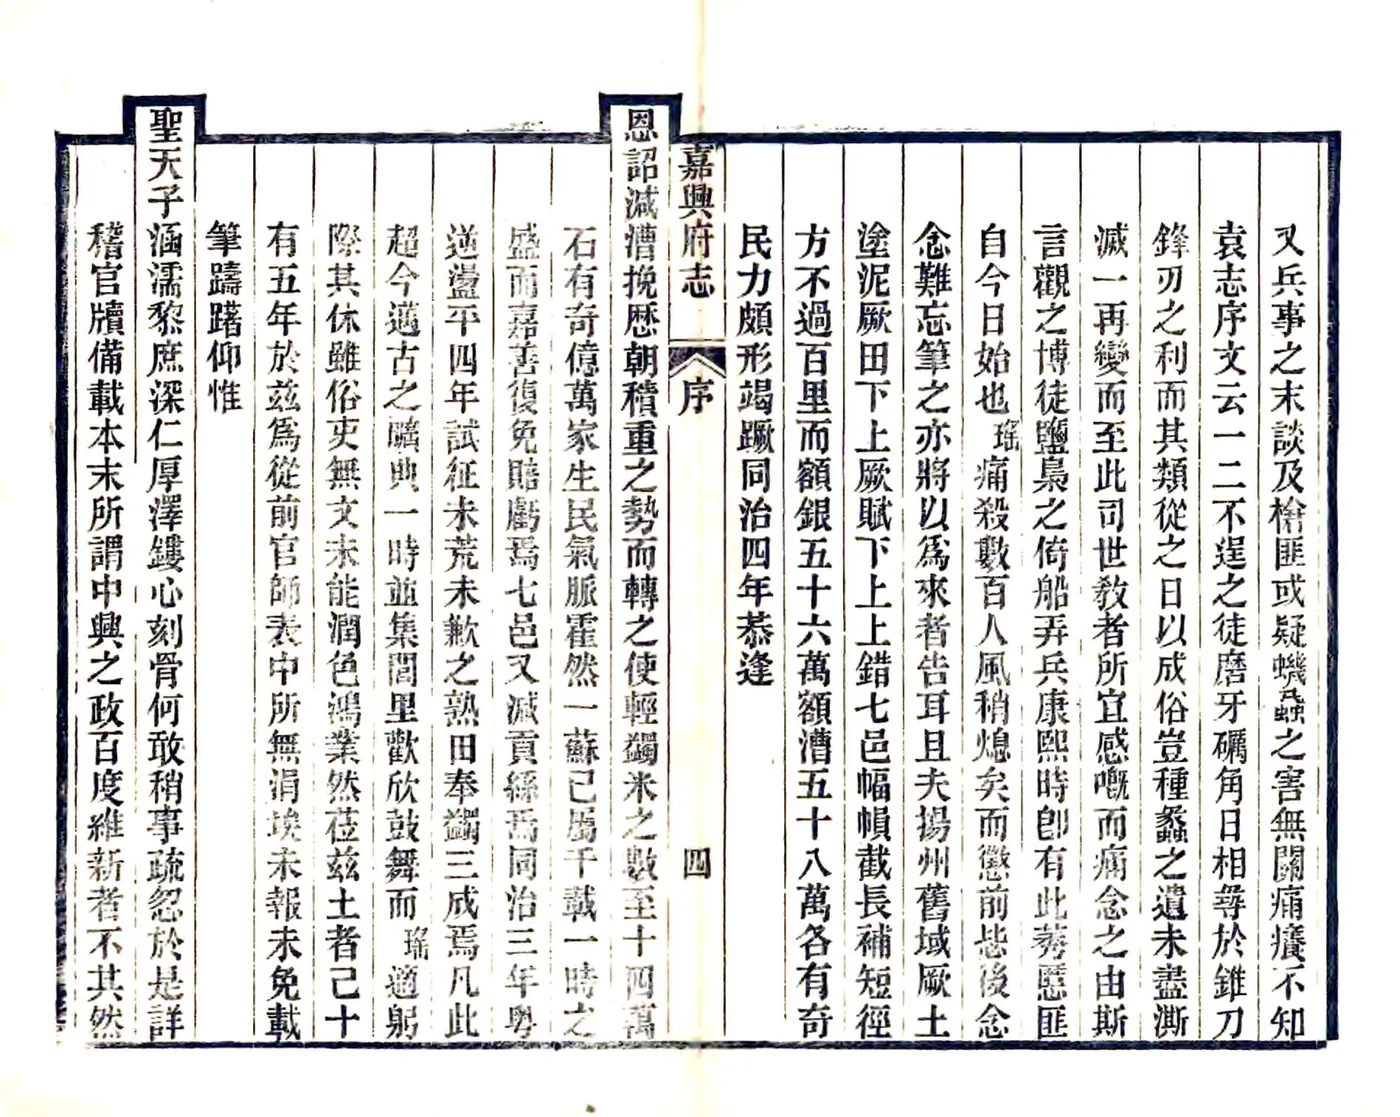 又兵事之末談及槍匪或疑蟣蝨之害無關痛癢不知
袁志序文云一二不逞之徒磨牙礪角日相尋於錐刀
鋒刃之利而其類從之日以成俗豈種蠡之遺未盡澌
滅一再變而至此司世教者所宜感嘅而痛念之由斯
言觀之博徒鹽梟之倚船弄兵康熙時卽有此莠慝匪
自今日始也瑤痛殺數百人風稍熄矣而懲前毖後念
念難忘筆之亦將以爲來者告耳且夫揚州舊域厥土
塗泥厥田下上厥賦下上上錯七邑幅幀截長補短徑
方不過百里而額銀五十六萬額漕五十八萬各有奇
民力頗形竭蹶同治四年恭逢
嘉興府志
序
四
恩詔減漕挽歷朝積重之勢而轉之使輕蠲米之數至十四萬
石有奇億萬家生民氣脈霍然一蘇已屬千載一時之
盛而嘉善復免賠虧焉七邑又減貢絲焉同治三年粵
逆盪平四年試征未荒未歉之熟田奉蠲三成焉凡此
超今邁古之曠典一時並集閭里歡欣鼓舞而瑤適躬
際其休雖俗吏無文未能潤色鴻業然莅茲土者已十
有五年於茲爲從前官師表中所無涓埃未報未免載
筆躊躇仰惟
聖天子涵濡黎庶深仁厚澤鏤心刻骨何敢稍事疏忽於是詳
稽官牘備載本末所謂中興之政百度維新者不其然